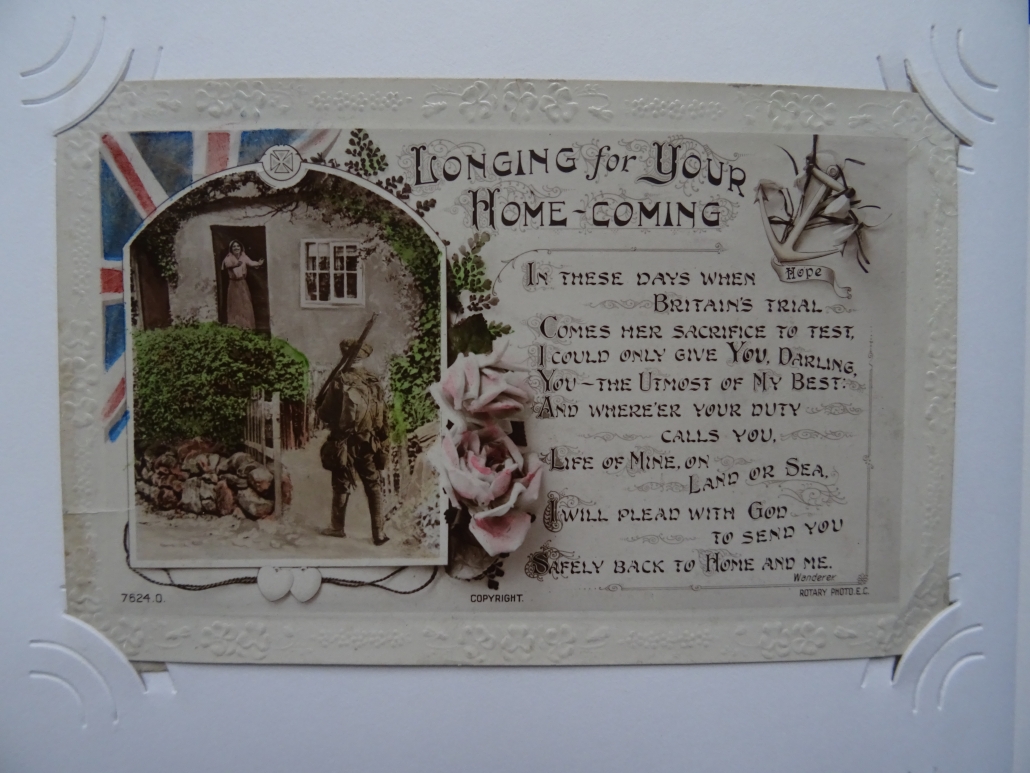 LONGING for YOUR
HOME-COMING
Hope
IN THESE DAYS WHEN
BRITAIN'S TRIAL
COMES HER SACRIFICE TO TEST,
I COULD ONLY GIVE YOU, DARLING,
YOU-THE UTMOST OF MY BEST:
AND WHERE'ER YOUR DUTY
CALLS YOU,
LIFE OF MINE, ON
LAND OR SEA,
I WILL PLEAD WITH GOD
TO SEND YOU
SAFELY BACK TO HOME AND ME.
Wanderer
7524.D.
COPYRIGHT.
ROTARY PHOTO. E.C.